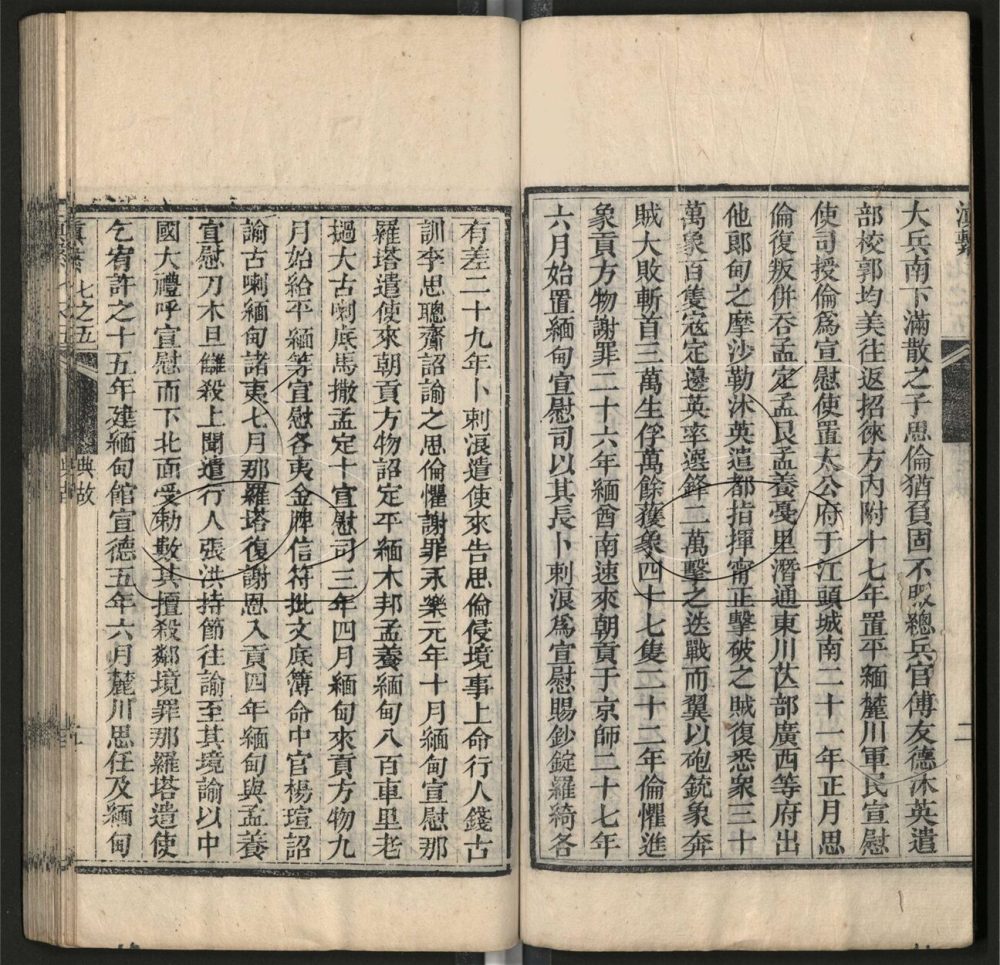 滇繫
大兵南下滿散之子思倫猶負固不服總兵官傅友德沐英遣
部校郭均美往返招徠方內附十七年置平緬麓川軍民宣慰
使司授倫爲宣慰使置太公府于江頭城南二十一年正月思
倫復叛併吞孟定孟艮孟養戞里潛通東川苡部廣西等府出
他郎甸之摩沙勒沐英遣都指揮甯正擊破之賊復悉衆三十
萬象百隻寇定邊英率選鋒二萬擊之迭戰而翼以砲銃象奔
賊大敗斬首三萬生俘萬餘獲象四十七隻二十二年倫懼進
象貢方物謝罪二十六年緬酋南速來朝貢于京師二十七年
六月始置緬甸宣慰司以其長卜剌浪爲宣慰賜鈔錠羅綺各
二
有差二十九年卜剌浪遣使來告思倫侵境事上命行人錢古
訓李思聰齎詔諭之思倫懼謝罪永樂元年十月緬甸宣慰那
羅塔遣使來朝貢方物詔定平緬木邦孟養緬甸八百車里老
撾大古喇底馬撒孟定十宣慰司三年四月緬甸來貢方物九
月始給平緬等宣慰各夷金牌信符批文底簿命中官楊瑄詔
諭古喇緬甸諸夷七月那羅塔復謝恩入貢四年緬甸與孟養
宣慰刀木旦讎殺上聞遣行人張洪持節往諭至其境諭以中
國大禮呼宣慰而下北面受勅數其擅殺鄰境罪那羅塔遣使
乞宥許之十五年建緬甸館宣德五年六月麓川思任及緬甸
滇繫 七之五 典故